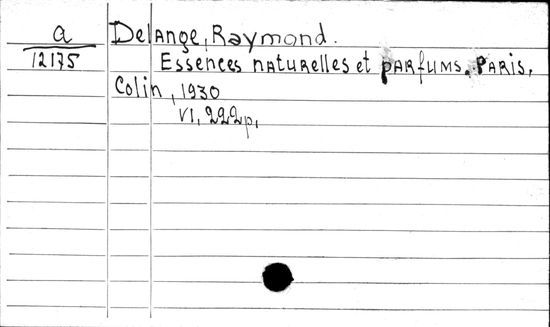 a
12175
Delange, Raymond.
Essences naturelles et parfums. Paris,
Colin, 1930
VI, 222p,